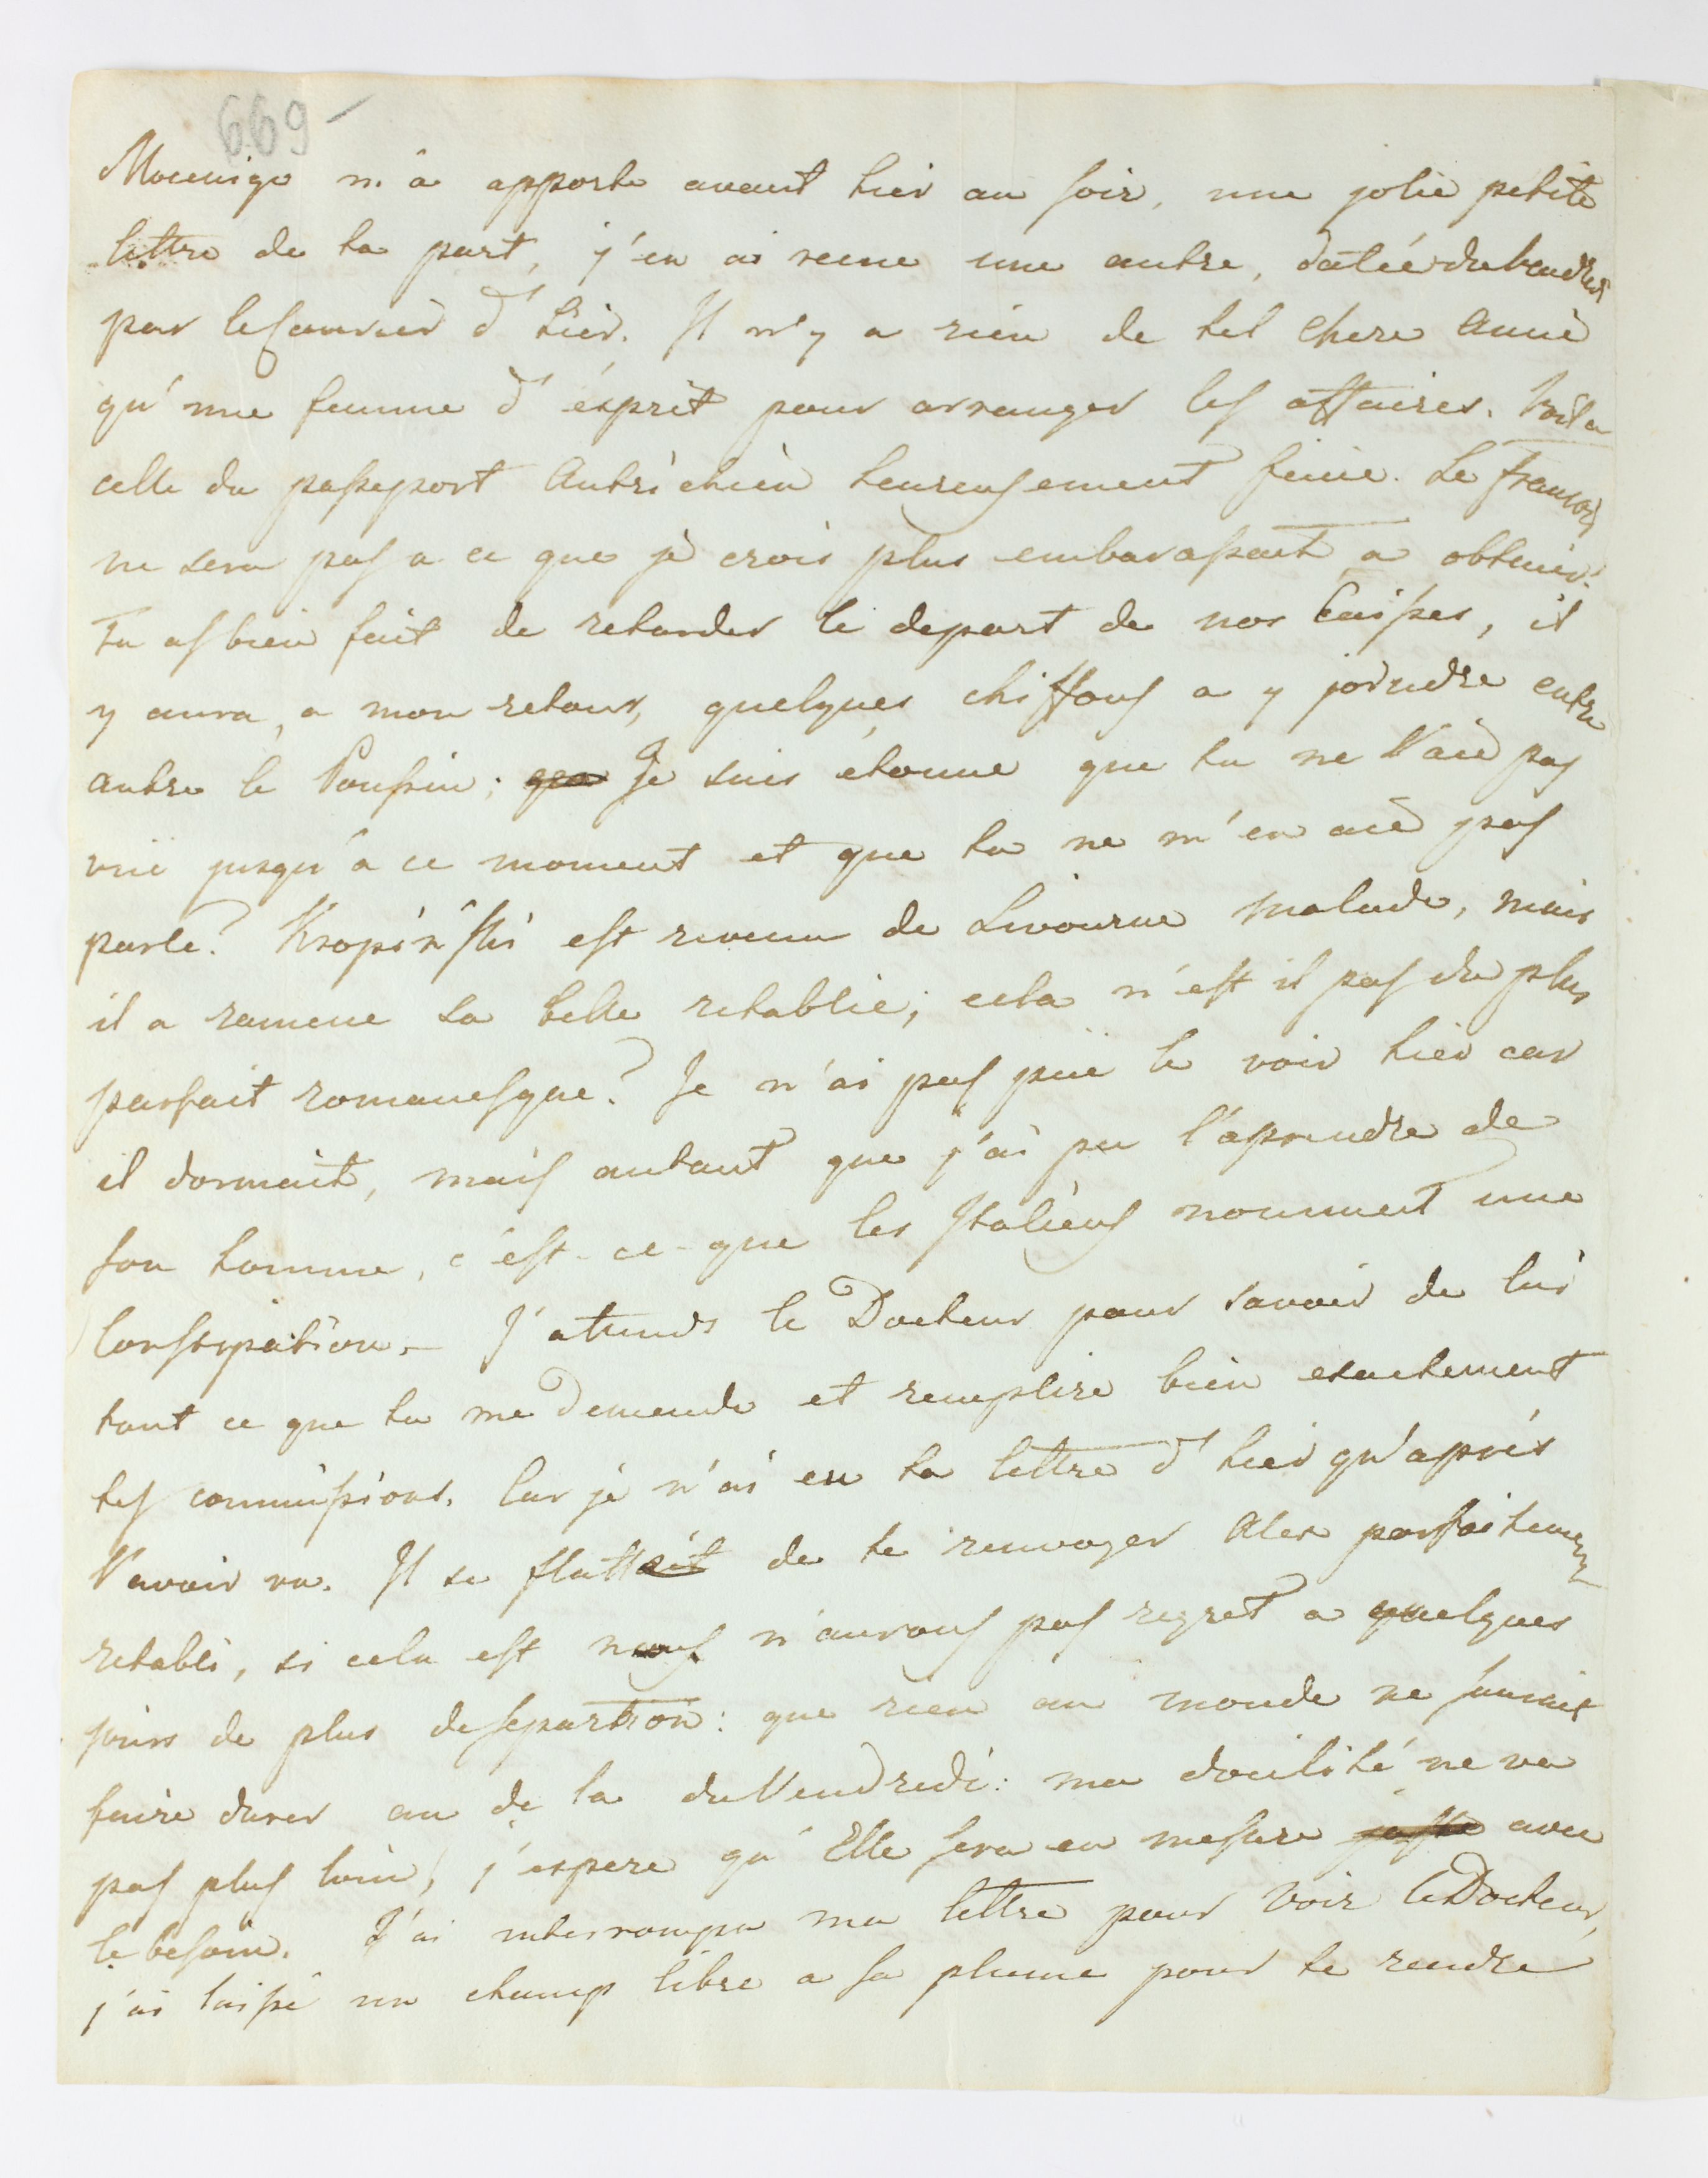 669
Mocenigo m'a apporte avant hier au soir, une jolie petite
lettre de ta part, j'en ai recue une autre, datée du Vendredi
par le Courrier d'hier. Il n'y a rien de tel chere Amie
qu'une femme d'ésprit pour arranger les affaires. Voila
celle du passeport Autrichien heureusement finie. Le francois
ne sera pas a ce que je crois plus embarassant a obtenir.
Tu as bien fait de retarder le depart de nos Caisses, il
y aura, a mon retour, quelques chiffons a y joindre entre
autre le Poussin; Je suis étonne que tu ne l'aie pas
vue jusqu'a ce moment et que tu ne m'en aie pas
parle? Kropiński est revenu de Livourne malade, mais
il a ramene sa belle retablie; cela n'est il pas du plus
parfait romanesque? Je n'ai pas pue le voir hier car
il dormait, mais autant que j'ai pu l'aprendre de
son homme, c'est-ce-que les Italiens nomment une
Constipation. – J'attends le Docteur pour savoir de lui
tout ce que tu me demende et remplire bien exactement
tes commissions. Car je n'ai eu ta lettre d'hier qu'après
l'avoir vu. Il se flattait de te renvoyer Alex parfaitement
retabli, si cela est nous n'aurons pas regret a quelques
jours de plus de separtion: que rien au monde ne sauroit
faire durer au de la du Vendredi: ma docilité ne va
pas plus loin, j'espere qu'Elle sera en mesure juste avec
le besoin. J'ai interrompu ma lettre pour voir le Docteur,
j'ai laissé un champ libre a sa plume pour te rendre